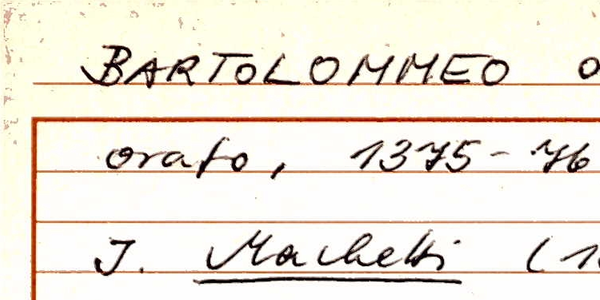 BARTOLOMMEO
orafo, 1375-76
I. Machetti (1